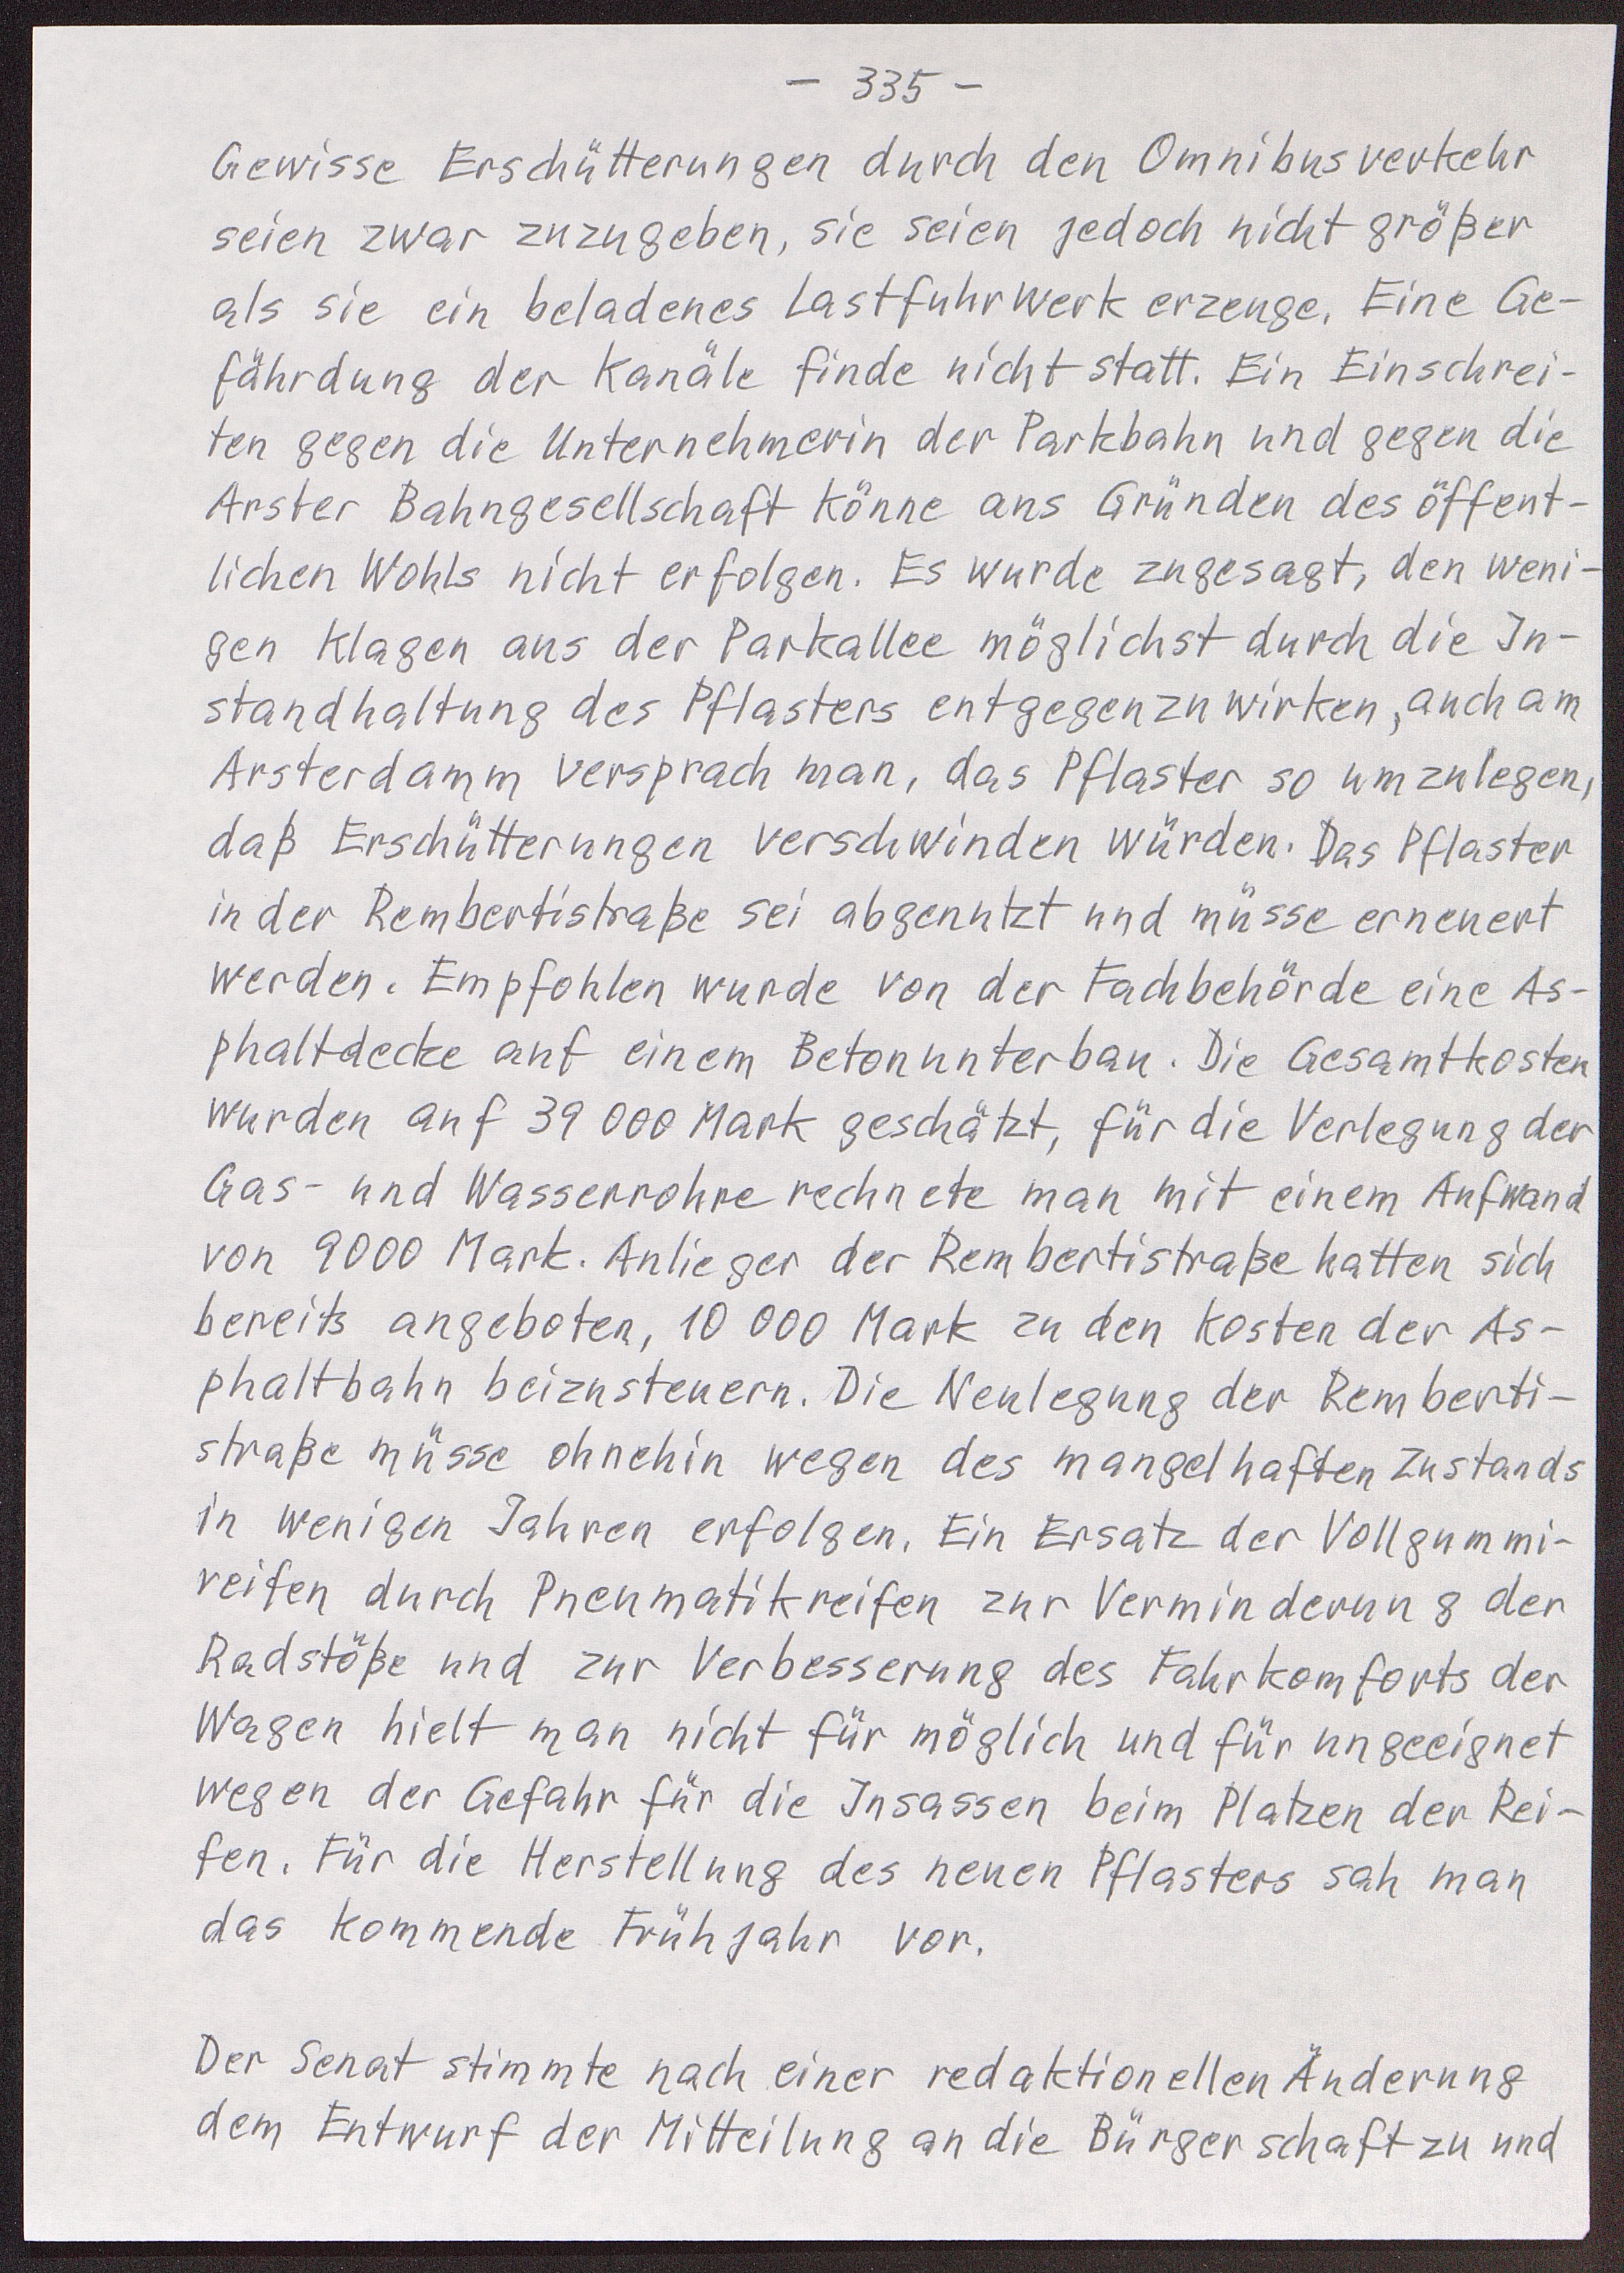 - 335 -
Gewisse Erschütterungen durch den Omnibusverkehr
seien zwar zuzugeben, sie seien jedoch nicht größer
als sie ein beladenes Lastfuhrwerk erzeuge. Eine Ge-
fährdung der Kanäle finde nicht statt. Ein Einschrei-
ten gegen die Unternehmerin der Parkbahn und gegen die
Arster Bahngesellschaft könne aus Gründen des öffent-
lichen Wohls nicht erfolgen. Es wurde zugesagt, den weni-
gen Klagen aus der Parkallee möglichst durch die In-
standhaltung des Pflasters entgegenzuwirken, auch am
Arsterdamm versprach man, das Pflaster so umzulegen,
daß Erschütterungen verschwinden würden. Das Pflaster
in der Rembertistraße sei abgenutzt und müsse erneuert
werden. Empfohlen wurde von der Fachbehörde eine As-
phaltdecke auf einem Betonunterbau. Die Gesamtkosten
wurden auf 39 000 Mark geschätzt, für die Verlegung der
Gas- und Wasserrohre rechnete man mit einem Aufwand
von 9000 Mark. Anlieger der Rembertistraße hatten sich
bereits angeboten, 10 000 Mark zu den Kosten der As-
phaltbahn beizusteuern. Die Neulegung der Remberti-
straße müsse ohnehin wegen des mangelhaften Zustands
in wenigen Jahren erfolgen. Ein Ersatz der Vollgummi-
reifen durch Pneumatikreifen zur Verminderung der
Radstöße und zur Verbesserung des Fahrkomforts der
Wagen hielt man nicht für möglich und für ungeeignet
wegen der Gefahr für die Insassen beim Platzen der Rei-
fen. Für die Herstellung des neuen Pflasters sah man
das kommende Frühjahr vor.
Der Senat stimmte nach einer redaktionellen Änderung
dem Entwurf der Mitteilung an die Bürgerschaft zu und